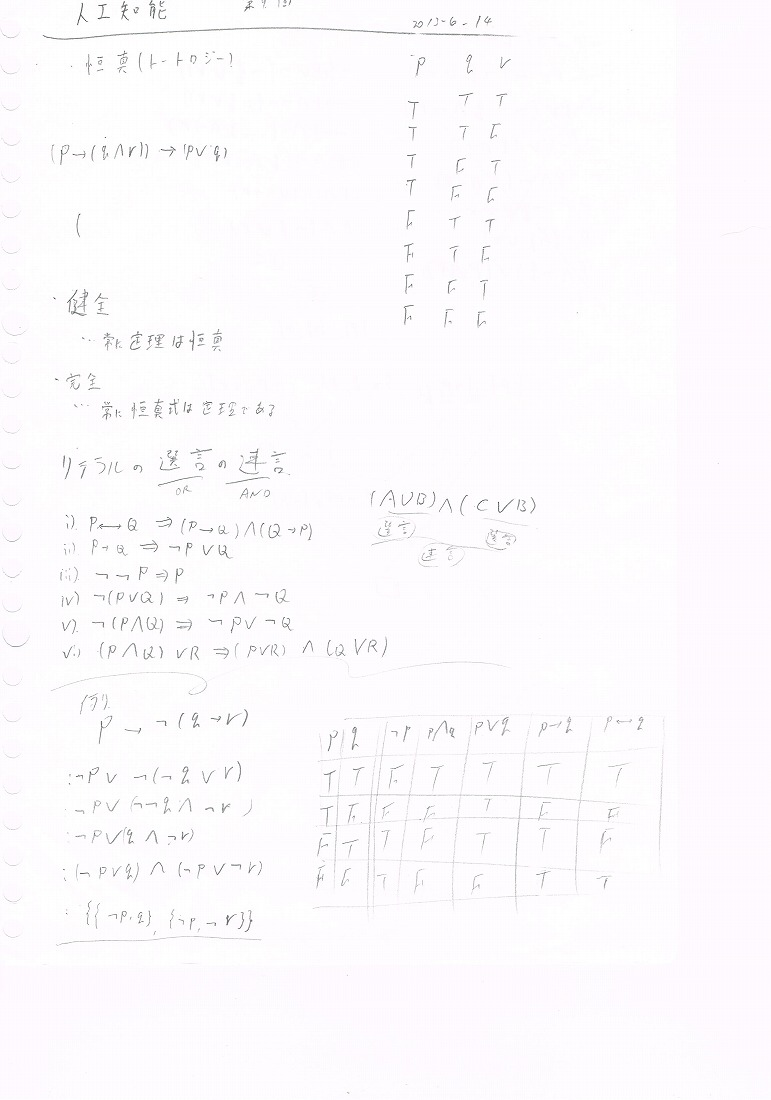 人工知能
2013-6-14
・恒真(トートロジー)
p q r
T T T
T T F
T F T
T F F
F T T
F T F
F F T
F F F
(P→(q∧r))→(p∨q)
(
・健全
…常に定理は恒真
・完全
…常に恒真式は定理である
リテラルの選言の連言
OR AND
(A∨B)∧(C∨B)
選言 選言
連言
i) P↔Q ⇒(P→Q)∧(Q→P)
ii) P→Q ⇒¬P∨Q
iii) ¬¬P⇒P
iv) ¬(P∨Q) ⇒ ¬P∧¬Q
v) ¬(P∧Q) ⇒ ¬P∨¬Q
vi) (P∧Q)∨R ⇒(P∨R) ∧ (Q∨R)
例)
P → ¬(q→r)
:¬P∨ ¬(¬q∨r)
¬P∨(¬¬q∧¬r)
:¬P∨(q∧¬r)
:(¬p∨q)∧(¬p∨¬r)
: {{¬p,q},{¬p,¬r}}
p q ¬p p∧q p∨q p→q p↔q
T T F T T T T
T F F F T F F
F T T F T T F
F F T F F T T